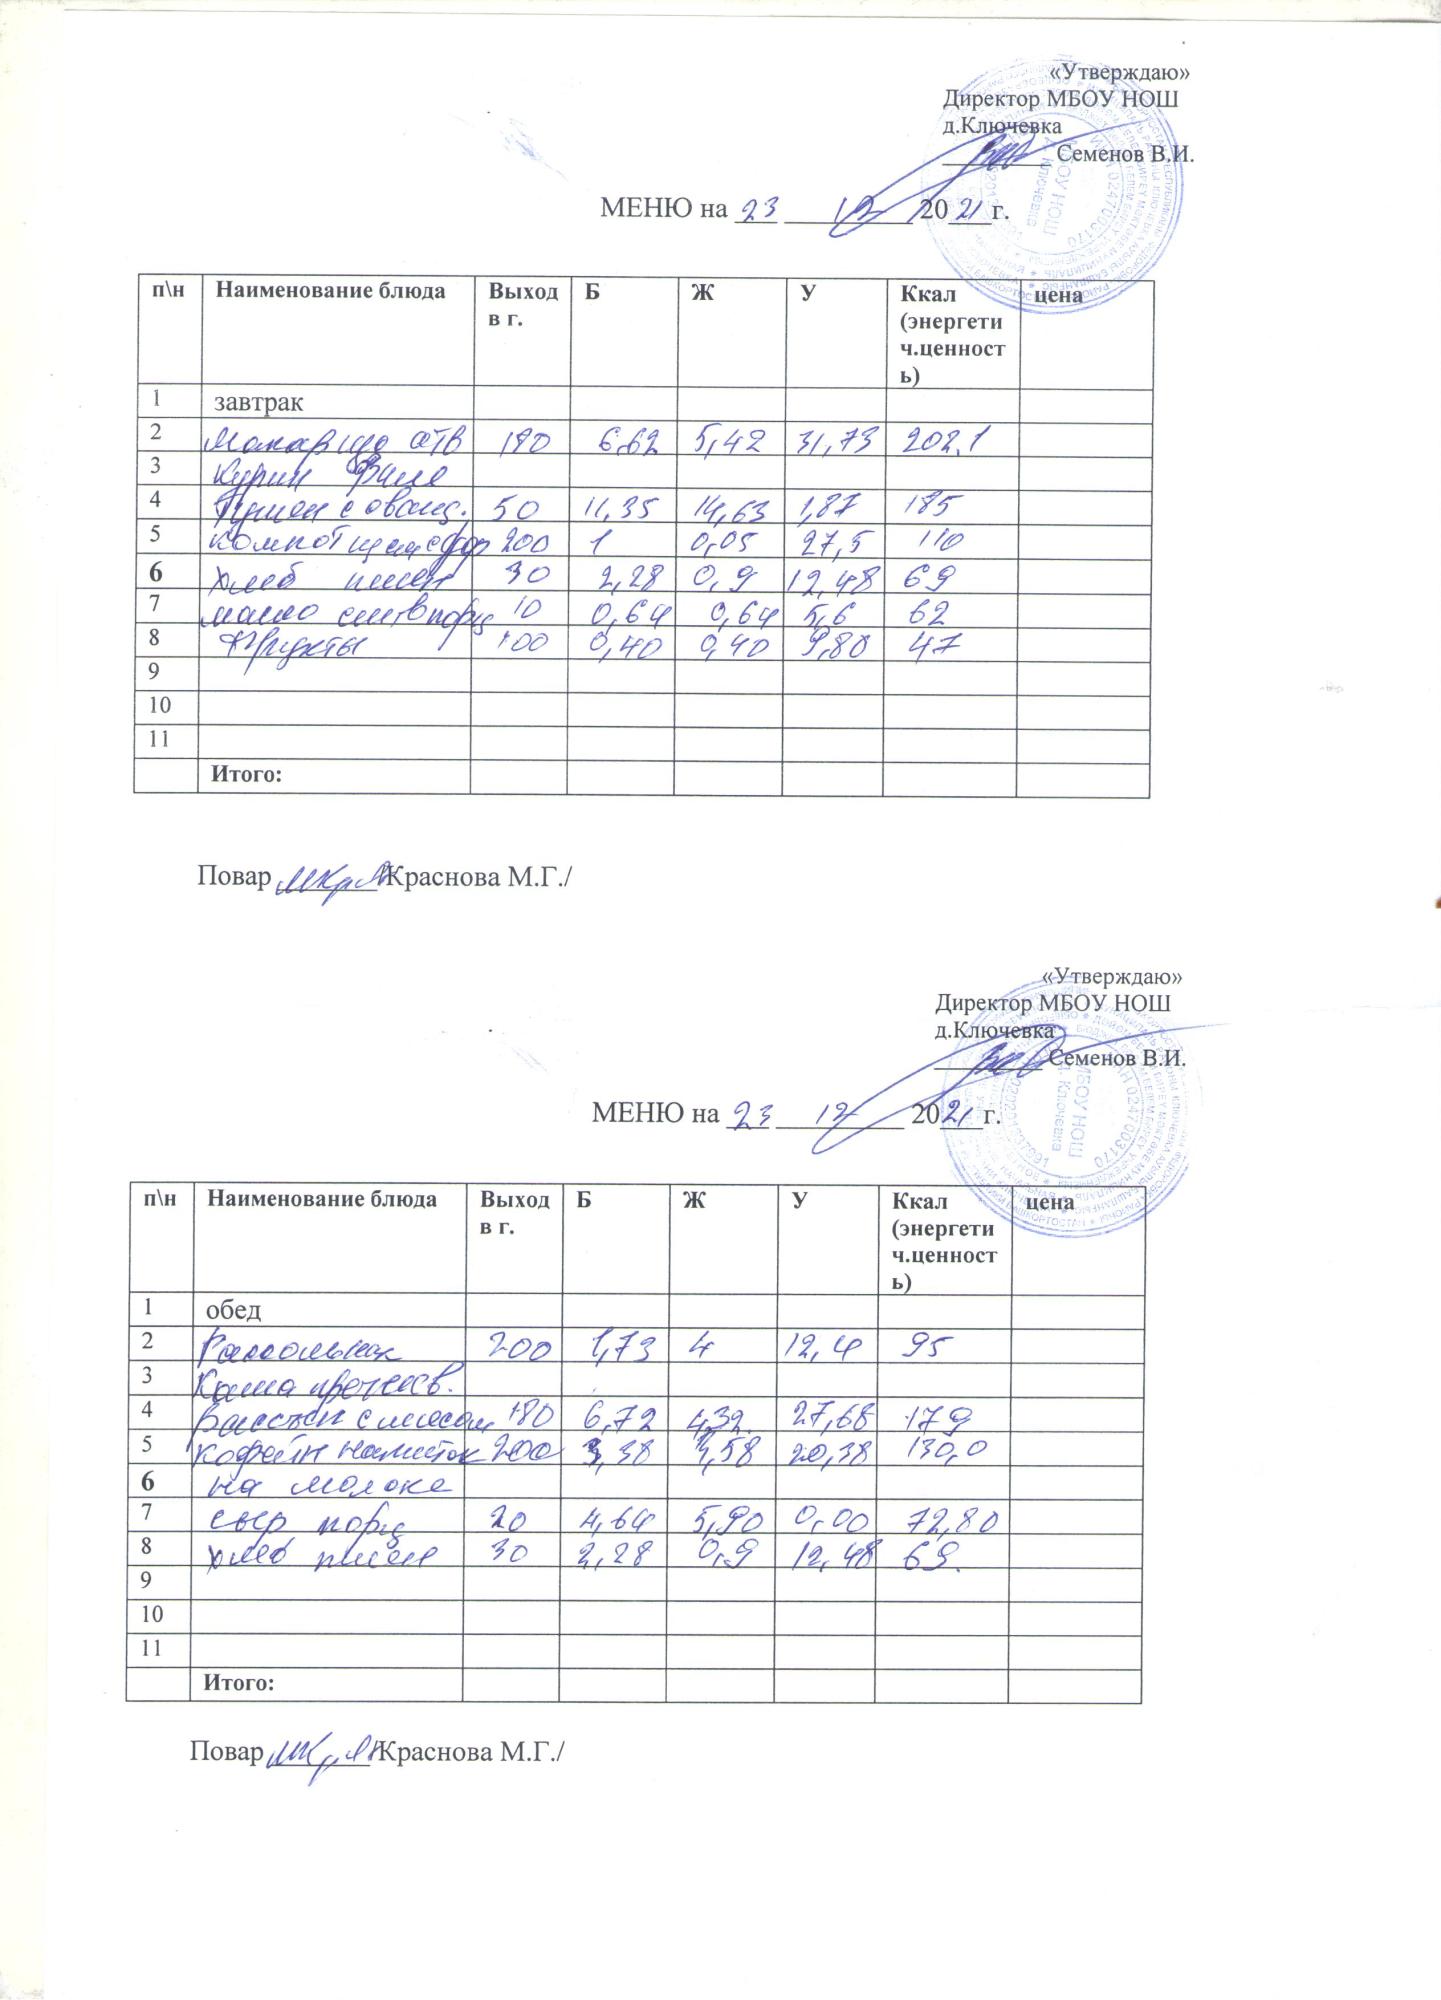 «Утверждаю»
Директор МБОУ НОШ
д.Ключевка
Семенов В.И.
МЕНЮ на 23 12 2021г.
п\н Наименование блюда Выход в г. Б Ж У Ккал (энергетич.ценность) цена
1 завтрак
2 Макар отв 180 6.62 5,42 31,73 202.1
3 Курин филе
4 Тушен с овощ. 50 11,35 14,63 1,87 185
5 компот 200 1 0,05 27,5 110
6 хлеб пшен 30 2,28 0,9 12,48 69
7 масло слив порц 10 0,64 0,64 5,6 62
8 Фрукты 100 0,40 0,40 9,80 47
9
10
11
Итого:
Повар /Краснова М.Г./
«Утверждаю»
Директор МБОУ НОШ
д.Ключевка
Семенов В.И.
МЕНЮ на 23 12 2021г.
п\н Наименование блюда Выход в г. Б Ж У Ккал (энергетич.ценность) цена
1 обед
2 Рассольник 200 1,73 4 12,4 95
3 Каша гречнев.
4 с мясом 180 6,72 4,32 27,68 179
5 Кофейн напиток 200 3,38 3,58 20,38 130,0
6 на молоке
7 сыр порц 20 4,64 5,90 0,00 72,80
8 хлеб пшен 30 2,28 0,9 12,48 69.
9
10
11
Итого:
Повар /Краснова М.Г./